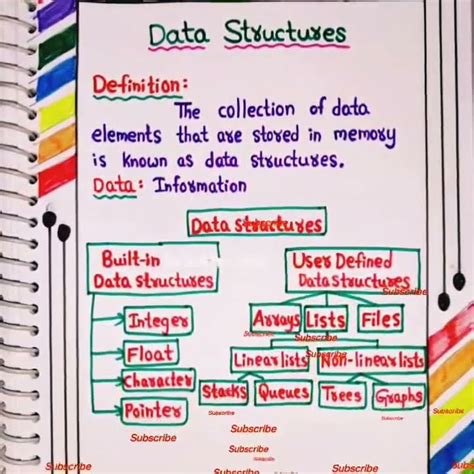 Data Structures
Definition:
The collection of data
elements that are stored in memory
is known as data structures.
Data: Information
Data structures
Built-in
Data structures
User Defined
Data structures
Subscribe
Integer
Arrays Lists Files
Subscribe
Subscribe
Float
Subscribe
Linear lists Non-linear lists
Character
Stacks Queues Trees Graphs
Pointer
Subscribe
Subscribe
Subscribe
Subscribe
Subscribe
Subscribe
Subscribe
Subscribe
Subscribe